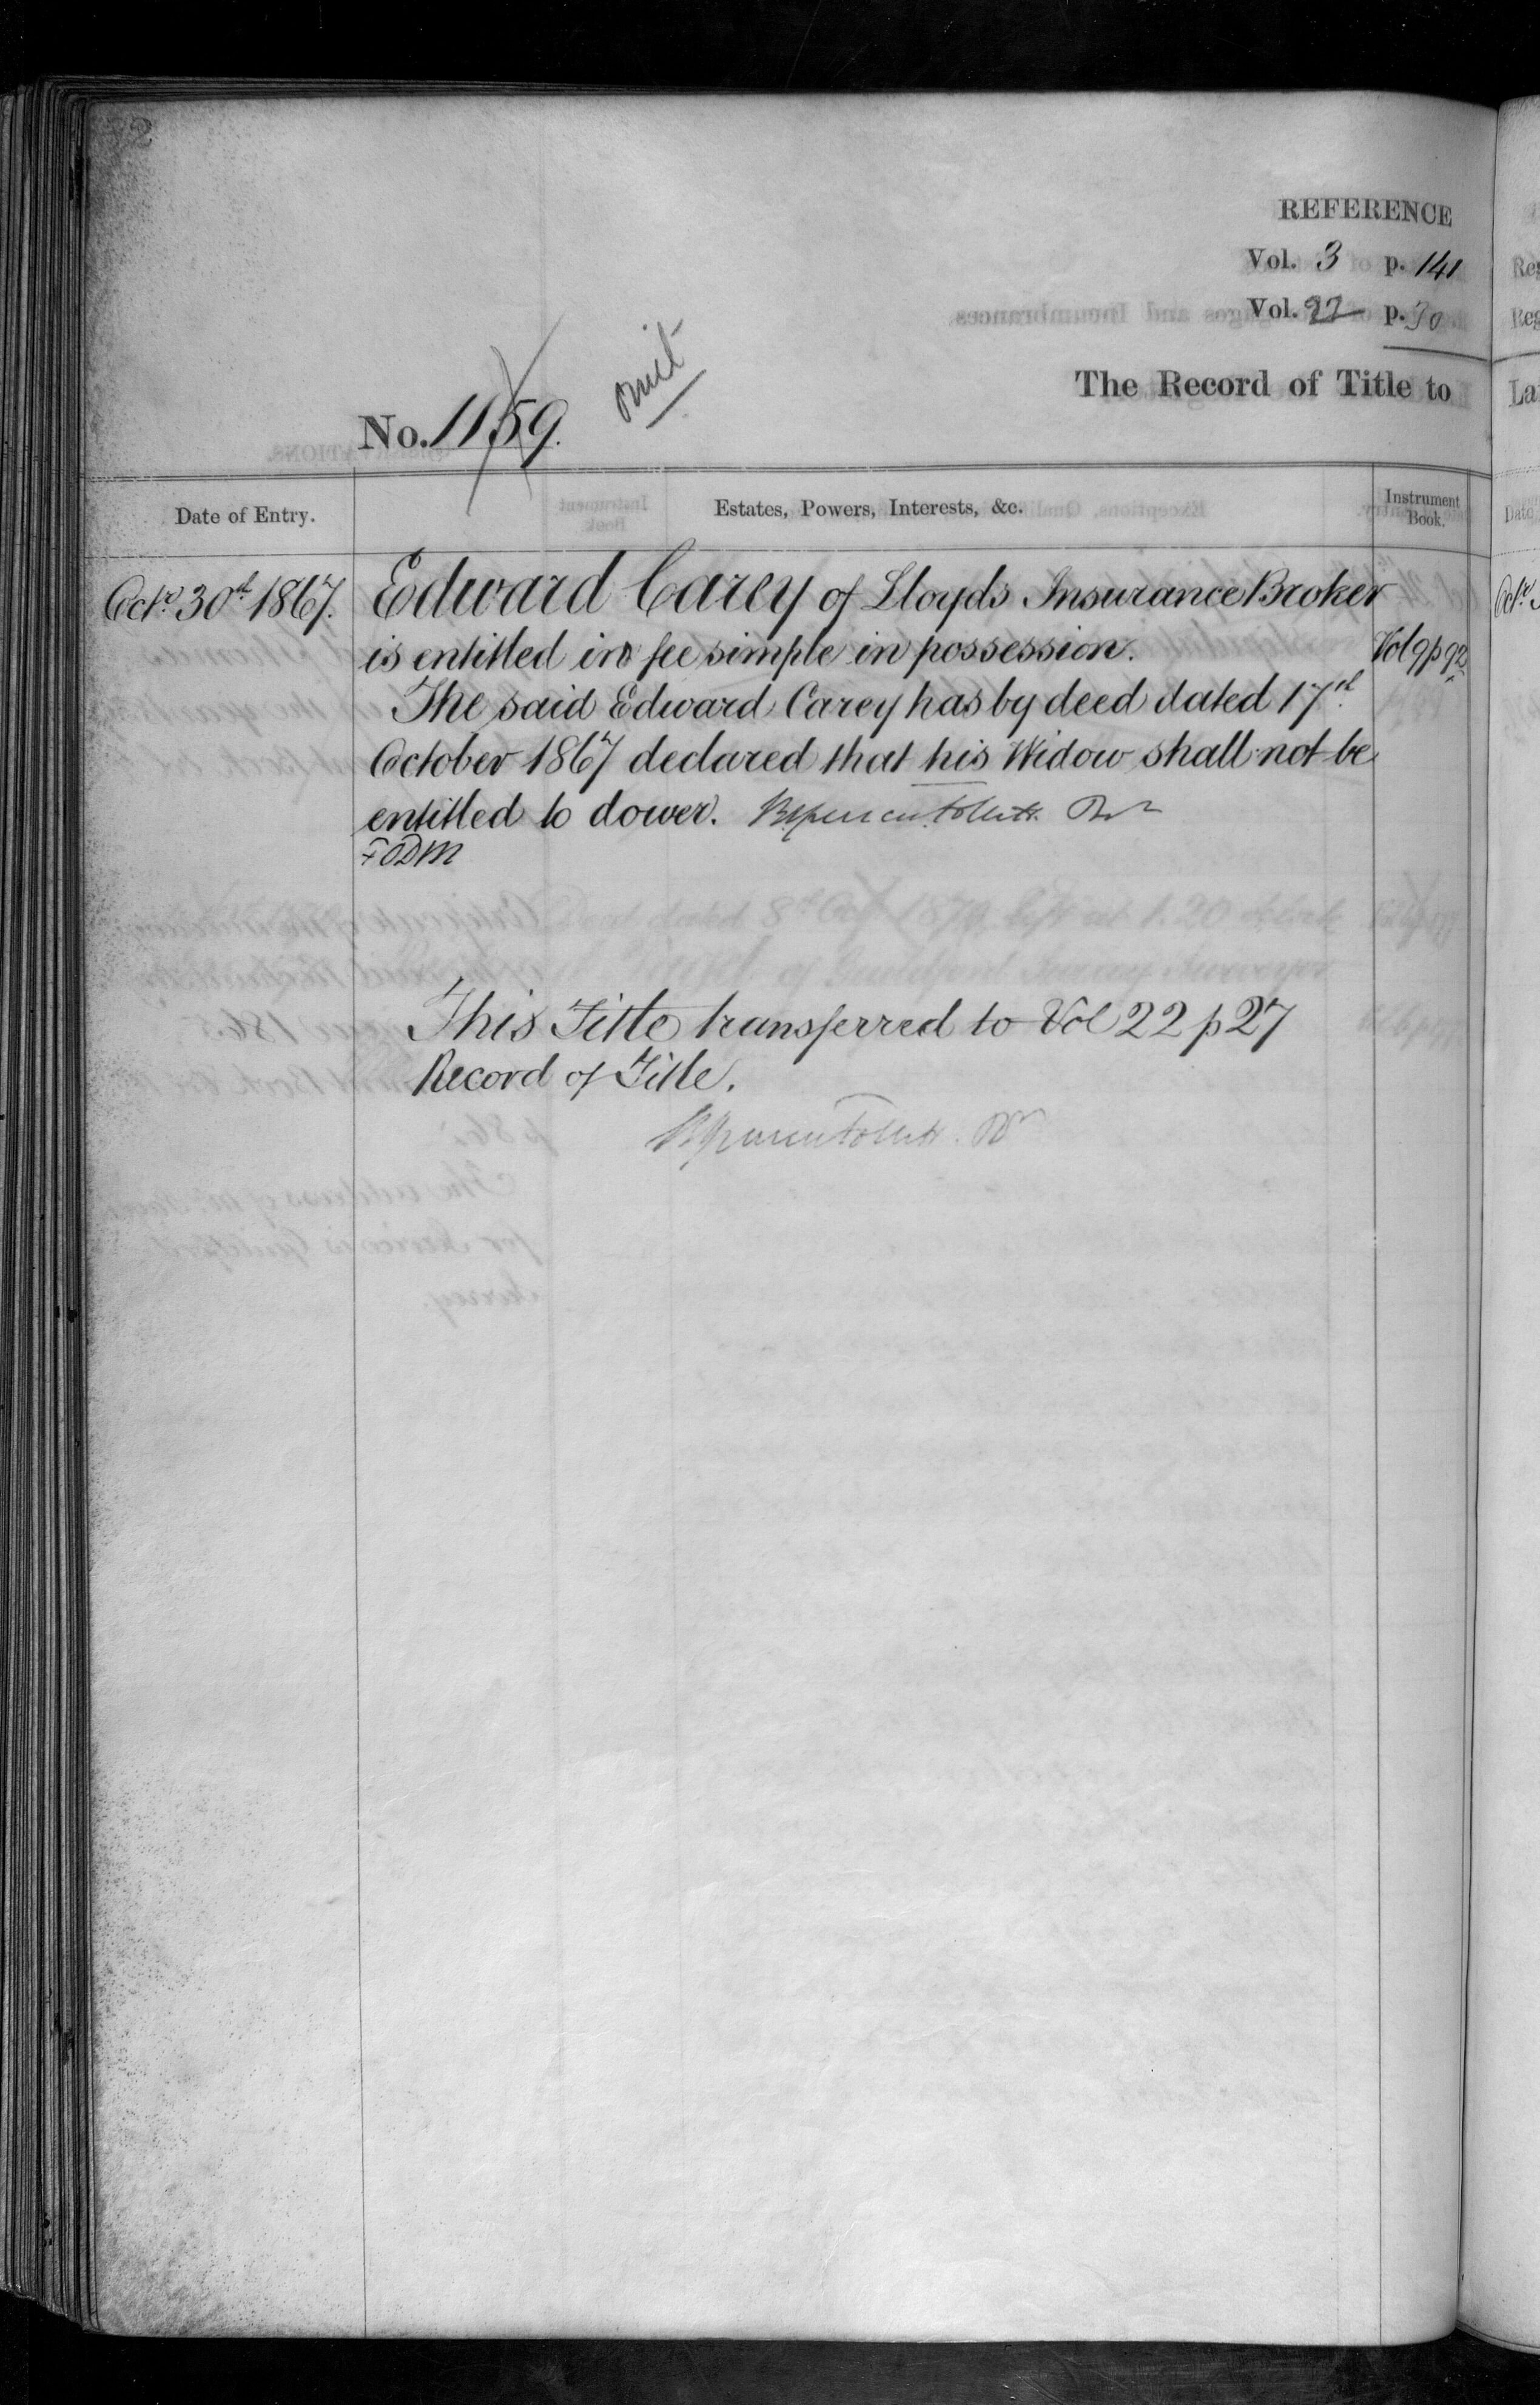 REFERENCE
Vol. 3 p. 141
Vol. 22 p. 30
The Record of Title to
No. 1159.
omit
Date of Entry.
Estates, Powers, Interests, &c.
Instrument Book.
Octr 30th 1867.
Edward Carey of Lloyds Insurance Broker
is entitled in fee simple in possession.
Vol 9 p 92
The said Edward Carey has by deed dated 17th
October 1867 declared that his Widow shall not be
entitled to dower.
This Title transferred to Vol 22 p 27
Record of Title.